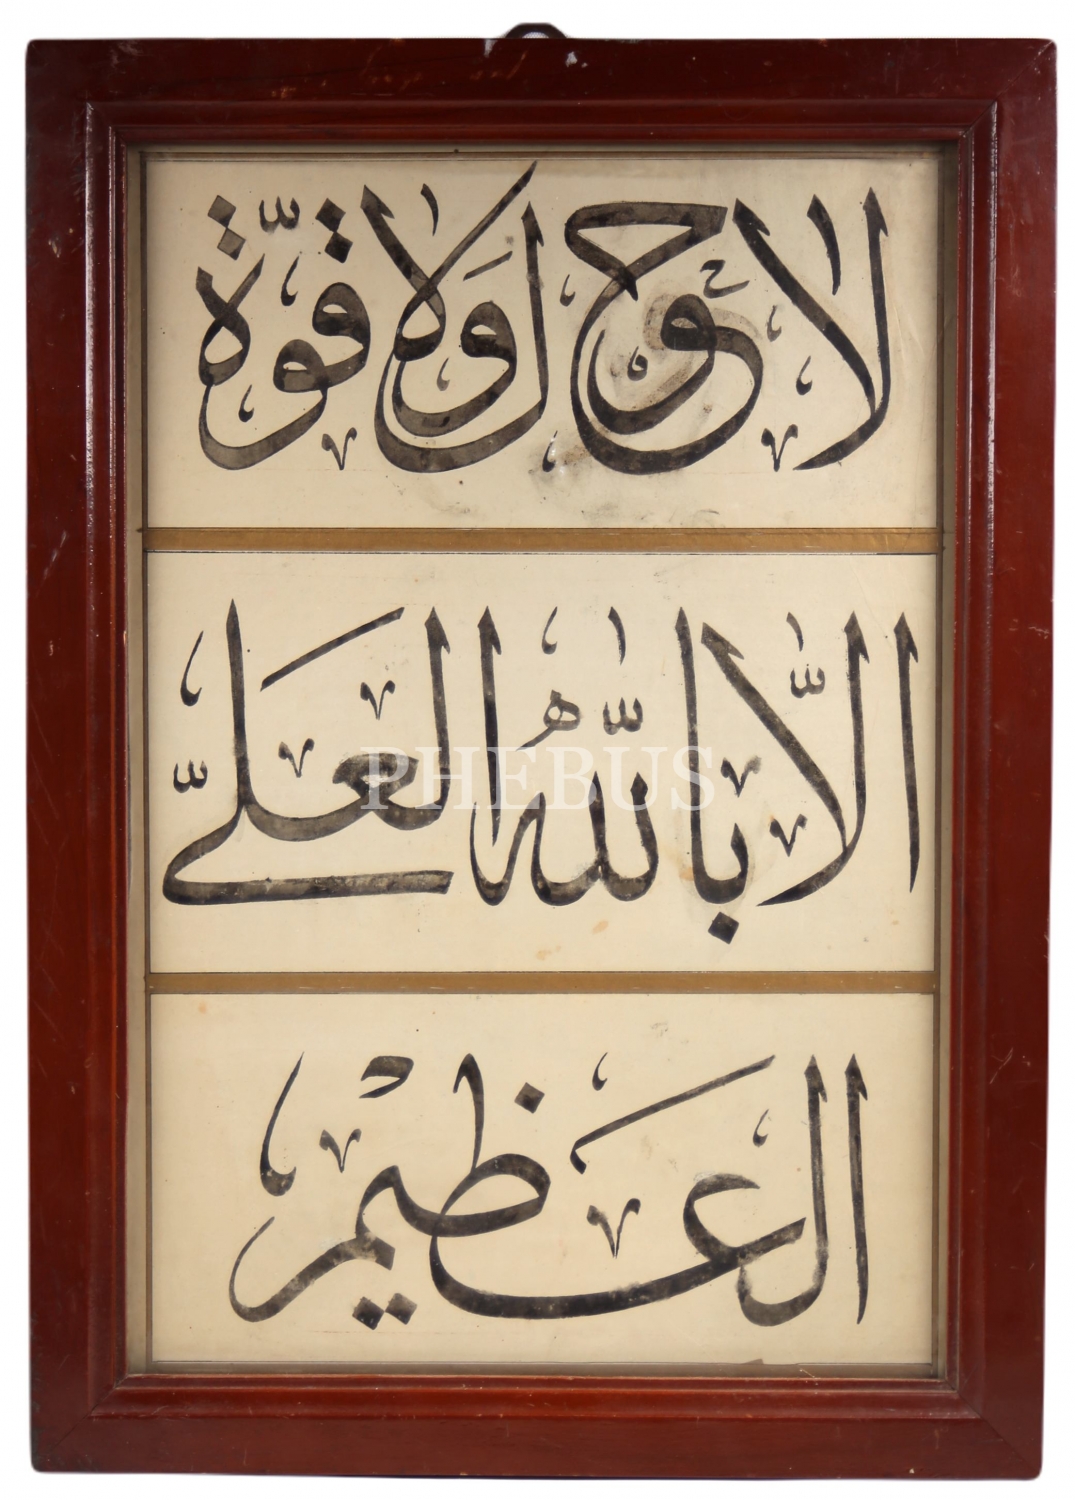 لا حول ولا قوّة
الّا باللّه العليّ
العظيم
PHEBUS